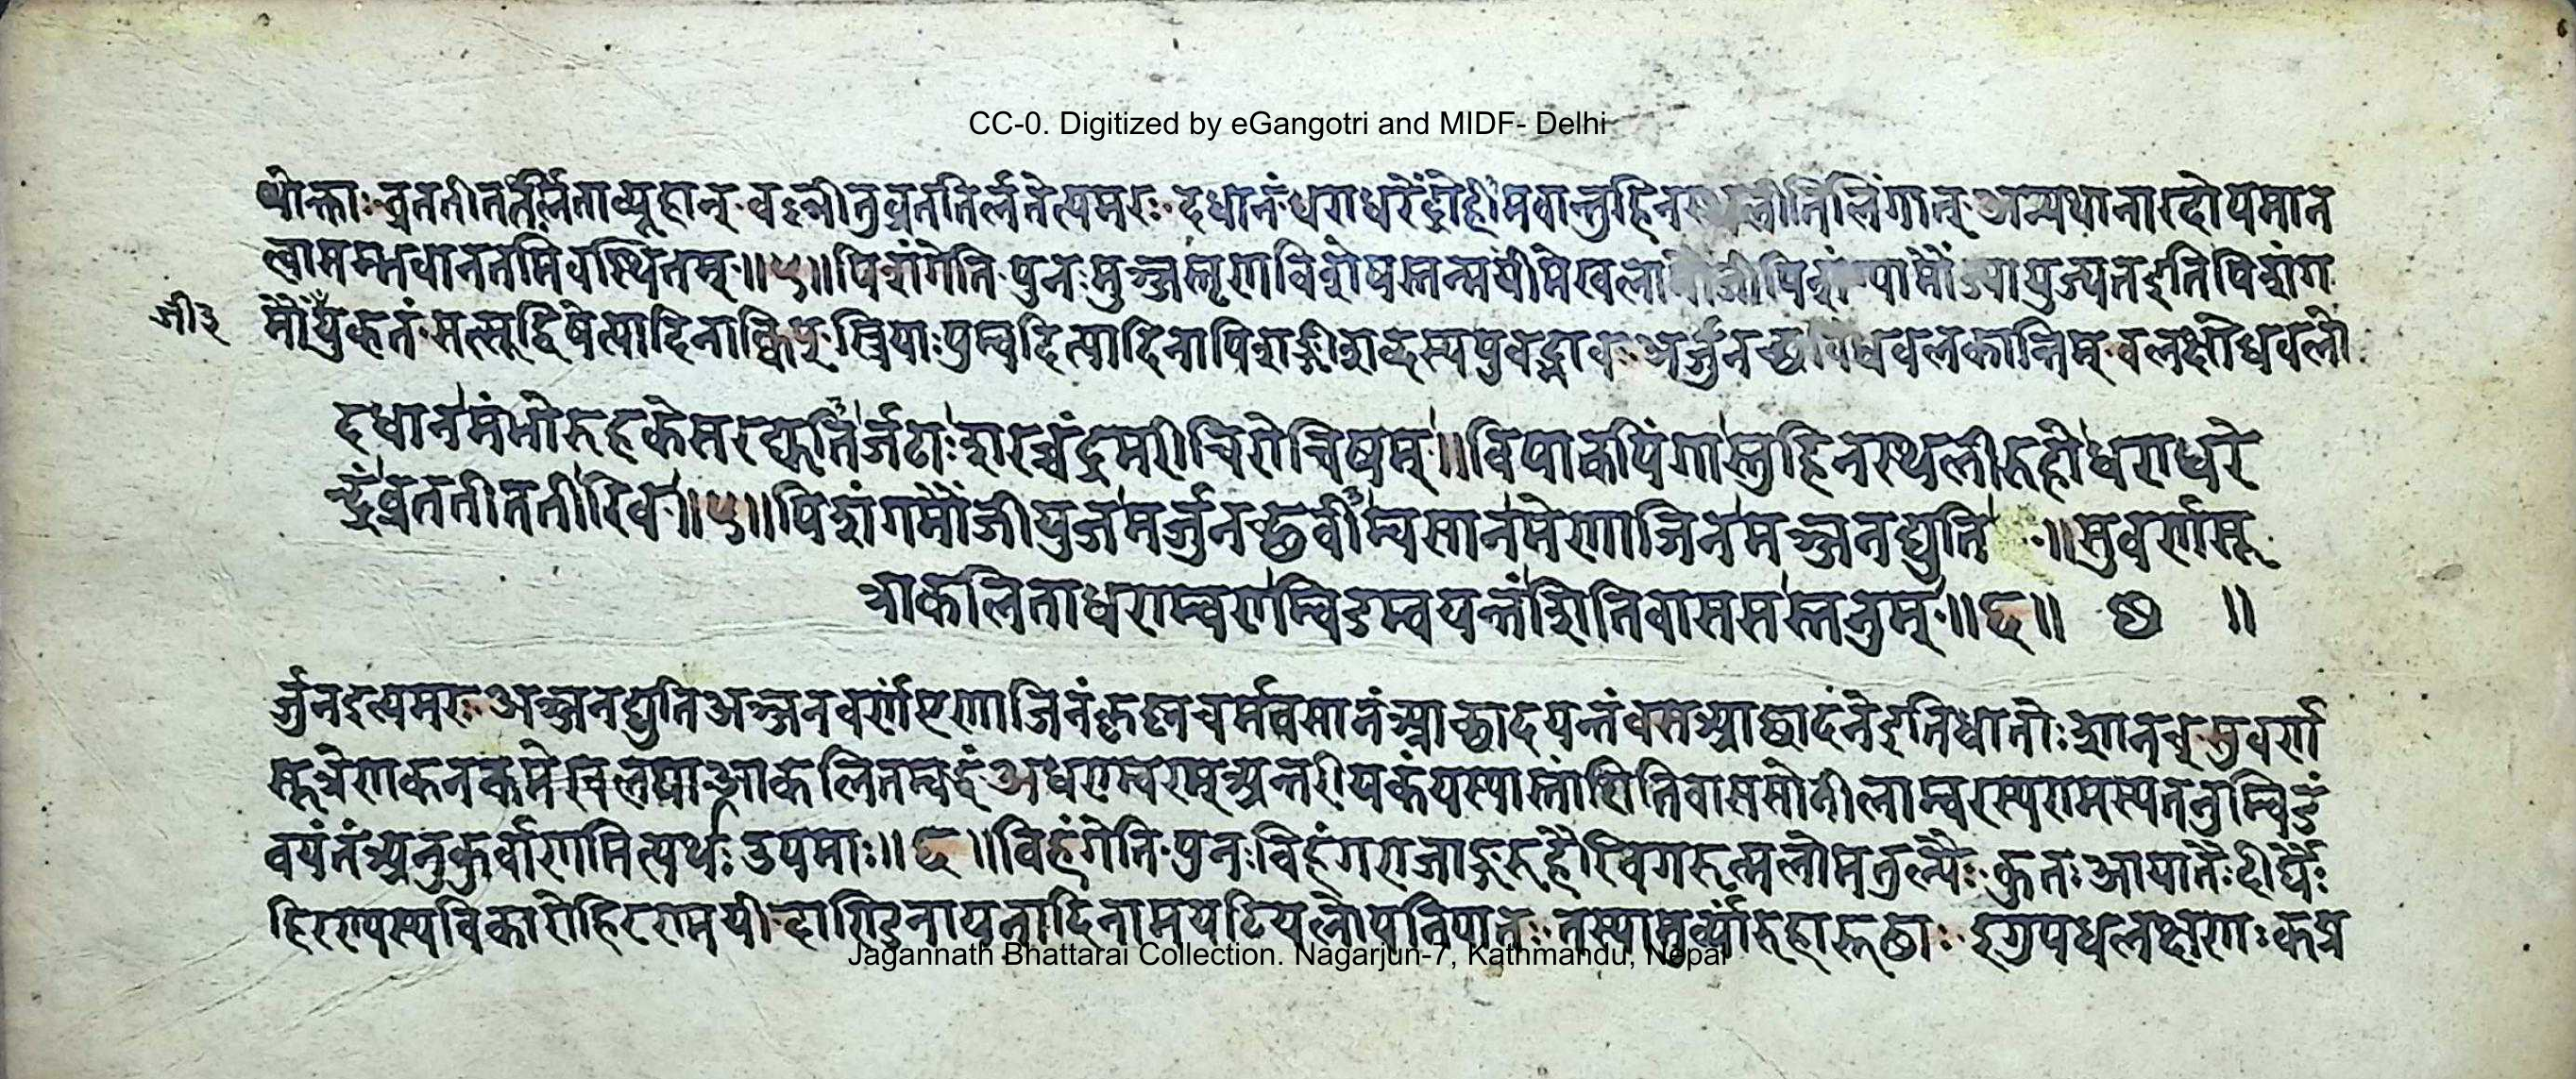 CC-0. Digitized by eGangotri and MIDF- Delhi
थोक्ताः व्रततीततीर्लताव्यूहान् वल्लीतुव्रततिर्लतेत्यमरः दधानं धराधरेंद्रोहिमवान्तुहिनस्थलीतिलिंगात् अन्यथानारदोपमान
त्वासम्भवाननतमिवस्थितम् ॥५॥ पिशंगेति पुनः मुञ्जस्तृणविशेषस्तन्मयीमेखला मौंजी पिशंग्यामौंज्यायुज्यतइतिपिशंग
मौंजीयुक् तं सत्सूद्विषेत्यादिनाक्विप् स्त्रियाःपुम्वदित्यादिनापिशङ्गीशब्दस्यपुंवद्भावः अर्जुनच्छविंधवलकान्तिम् वलक्षोधवलो
जी३
दधानमंभोरुहकेसरद्युतीर्जटाःशरच्चंद्रमरीचिरोचिषम् ॥ विपाकपिंगास्तुहिनस्थलीरुहोधराधरे
न्द्रंव्रततीततीरिव ॥५॥ पिशंगमौंजीयुजमर्जुनच्छवीम्वसानमेणाजिनमञ्जनद्युति ॥ सुवर्णसू
त्राकलिताधराम्वराम्विडम्वयन्तंशितिवाससस्तनुम् ॥६॥ ॥
र्जुनइत्यमरः अञ्जनद्युतिअञ्जनवर्णंएणाजिनंकृष्णचर्मवसानंआच्छादयन्तंवसआच्छादनेइतिधातोःशानच् सुवर्ण
सूत्रेणकनकमेखलयाआकलितम्वद्धंअधराम्वरम्अन्तरीयकंयस्यास्तांशितिवाससोनीलाम्वरस्यरामस्यतनुम्विडं
वयंतंअनुकुर्वाणमित्यर्थः उपमाः ॥६॥ विहंगेति पुनःविहंगराजाङ्गरुहैरिवगरुत्मलोमतुल्यैः कुतः आयातैः दीर्घैः
हिरण्यस्यविकारोहिरण्मयी दाण्डिनायनादिनामयटियलोपनिपातः तस्यामुर्व्यांरुहास्तरुहाः इगुपधलक्षणः कप्र
Jagannath Bhattarai Collection. Nagarjun-7, Kathmandu, Nepal